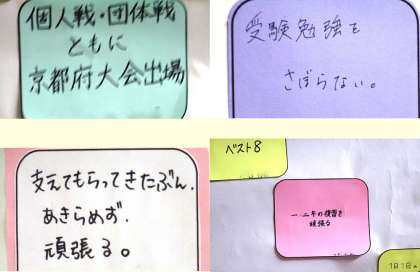 個人戦・団体戦
ともに
京都府大会出場
受験勉強を
さぼらない。
支えてもらってきたぶん、
あきらめず、
頑張る。
ベスト8
一、二年の復習を
頑張る
1日1日